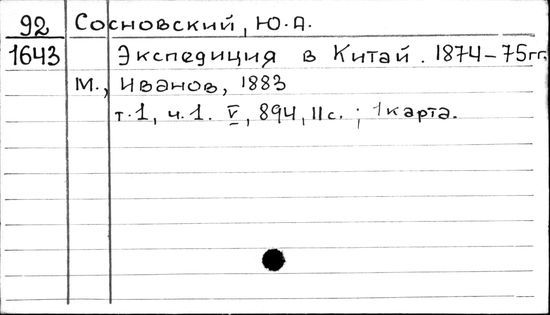 92 Сосновский, Ю.А.
1643 Экспедиция в Китай. 1874-75гг.
М., Иванов, 1883
т.1, ч.1. V, 894, IIс.; 1карта.